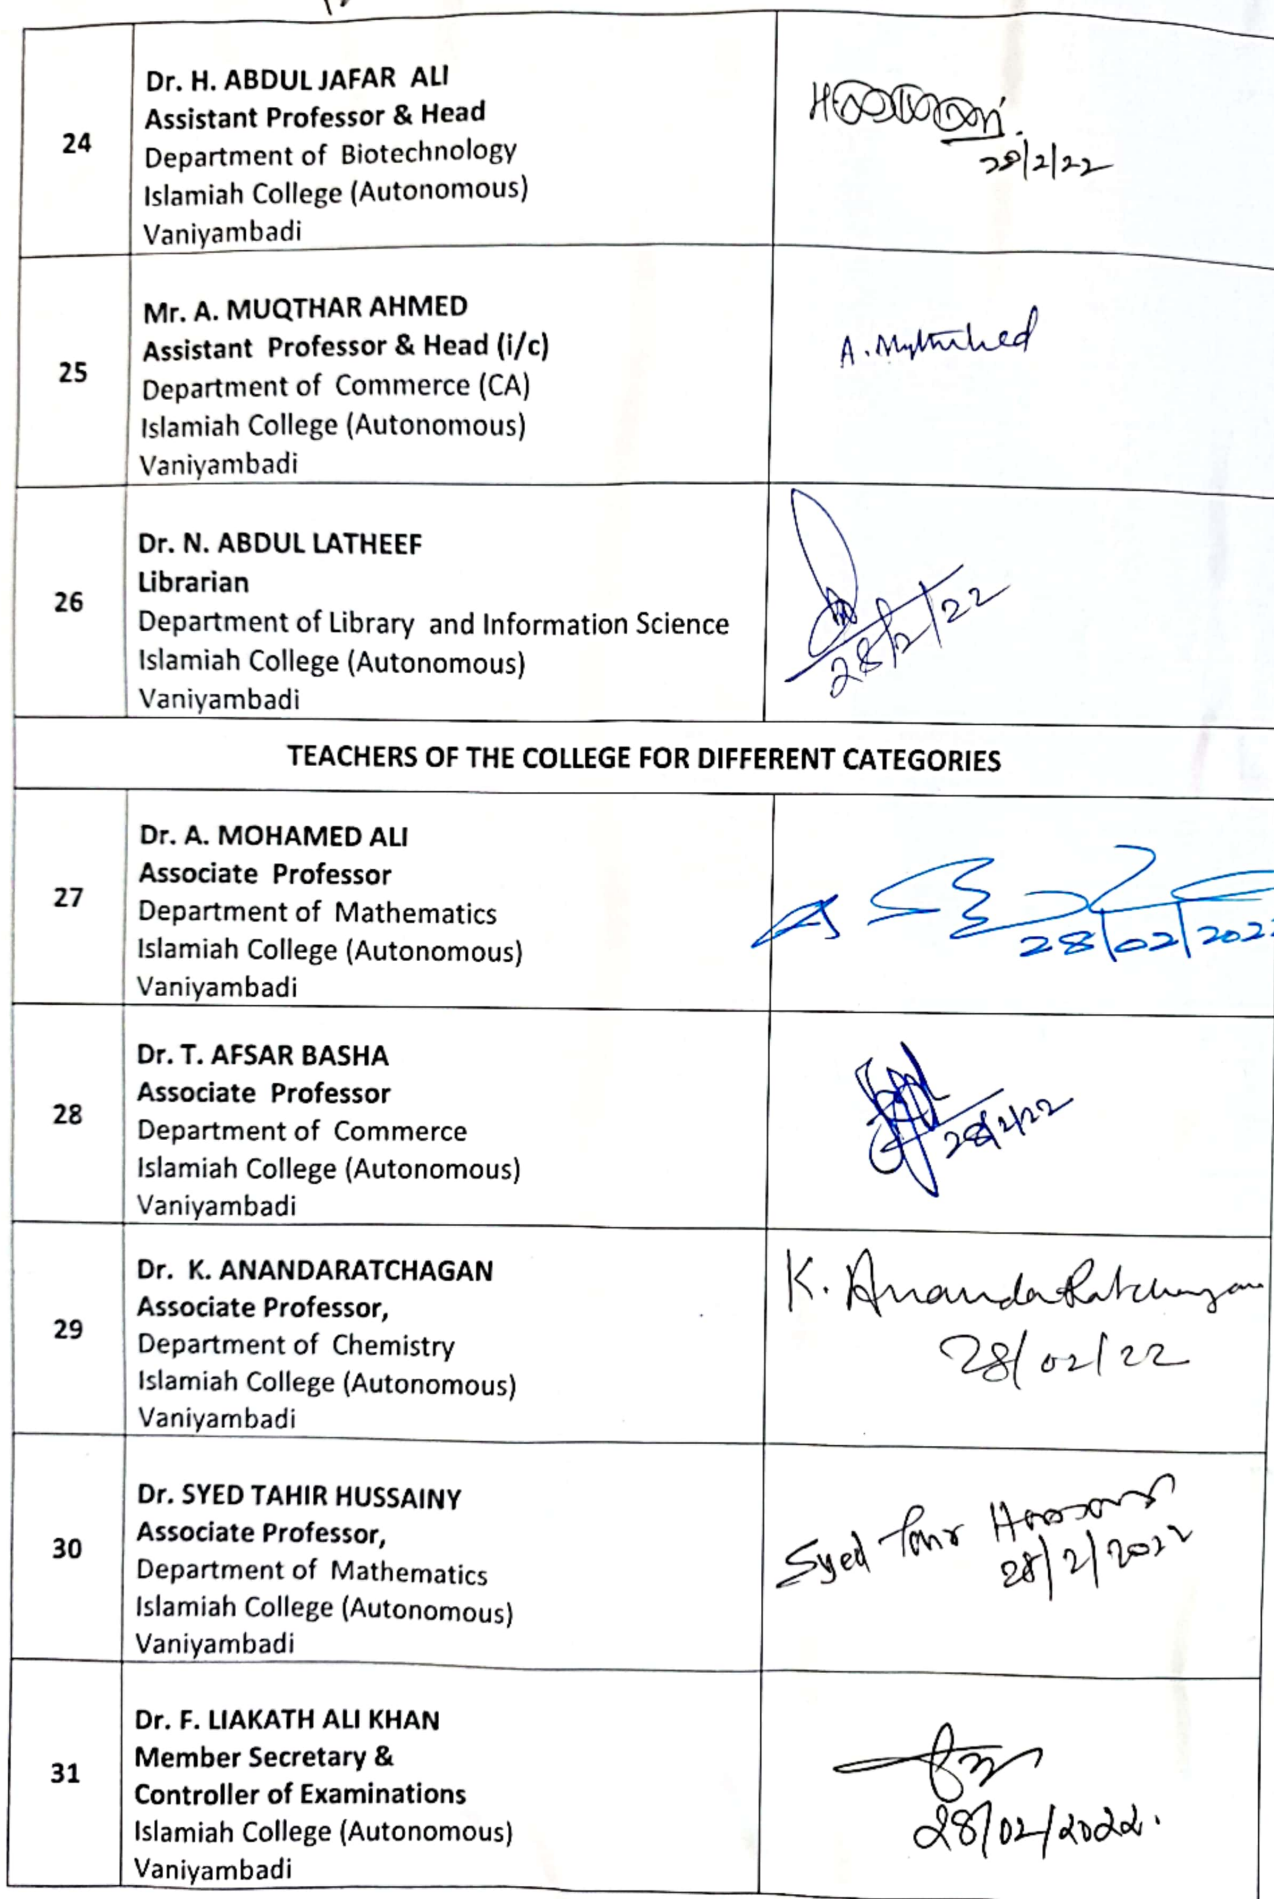 24
Dr. H. ABDUL JAFAR ALI
Assistant Professor & Head
Department of Biotechnology
Islamiah College (Autonomous)
Vaniyambadi
28/2/22
25
Mr. A. MUQTHAR AHMED
Assistant Professor & Head (i/c)
Department of Commerce (CA)
Islamiah College (Autonomous)
Vaniyambadi
A.
26
Dr. N. ABDUL LATHEEF
Librarian
Department of Library and Information Science
Islamiah College (Autonomous)
Vaniyambadi
28/2/22
TEACHERS OF THE COLLEGE FOR DIFFERENT CATEGORIES
27
Dr. A. MOHAMED ALI
Associate Professor
Department of Mathematics
Islamiah College (Autonomous)
Vaniyambadi
28/02/2022
28
Dr. T. AFSAR BASHA
Associate Professor
Department of Commerce
Islamiah College (Autonomous)
Vaniyambadi
28/2/22
29
Dr. K. ANANDARATCHAGAN
Associate Professor,
Department of Chemistry
Islamiah College (Autonomous)
Vaniyambadi
K. AnandaRatchagan
28/02/22
30
Dr. SYED TAHIR HUSSAINY
Associate Professor,
Department of Mathematics
Islamiah College (Autonomous)
Vaniyambadi
Syed
28/2/2022
31
Dr. F. LIAKATH ALI KHAN
Member Secretary &
Controller of Examinations
Islamiah College (Autonomous)
Vaniyambadi
28/02/2022.